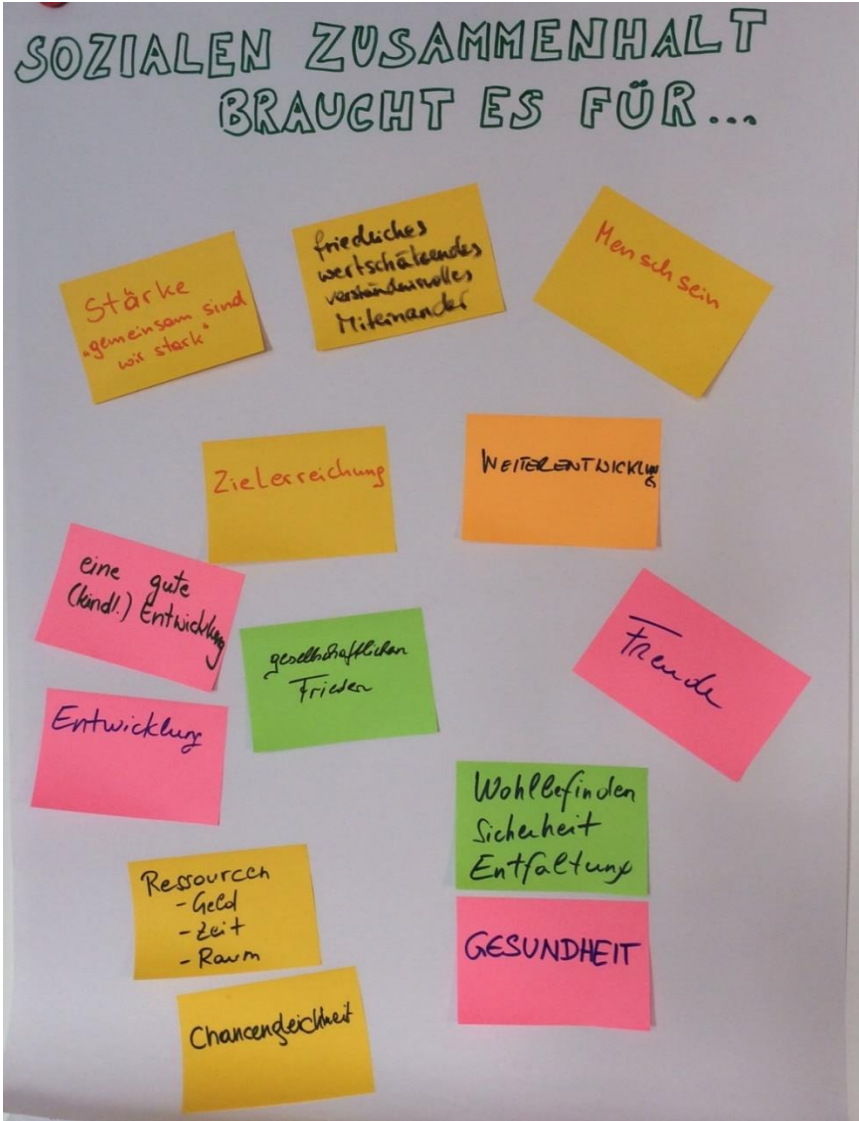 SOZIALEN ZUSAMMENHALT
BRAUCHT ES FÜR...
Stärke
"gemeinsam sind
wir stark"
friedliches
wertschätzendes
verständnisvolles
Miteinander
Menschsein
Zielerreichung
WEITERENTWICKLUNG
eine gute
(kindl.) Entwicklung
gesellschaftlichen
Frieden
Freude
Entwicklung
Wohlbefinden
Sicherheit
Entfaltung
Ressourcen
- Geld
- Zeit
- Raum
GESUNDHEIT
Chancengleichheit